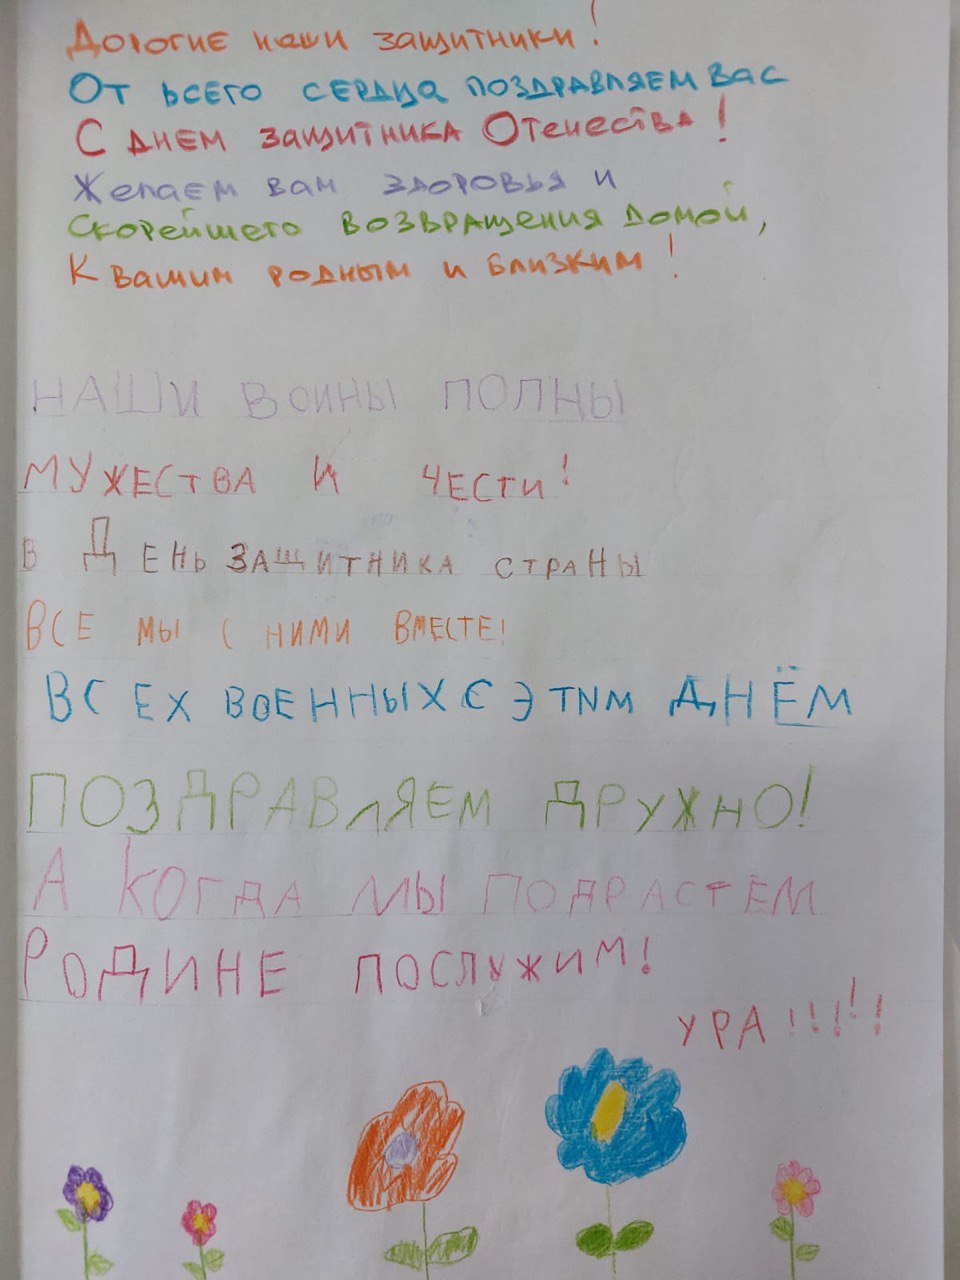 Дорогие наши защитники!
От всего сердца поздравляем вас
С днем защитника Отечества!
Желаем вам здоровья и
скорейшего возвращения домой,
к вашим родным и близким!
НАШИ ВОИНЫ ПОЛНЫ
МУЖЕСТВА И ЧЕСТИ!
В ДЕНЬ ЗАЩИТНИКА СТРАНЫ
ВСЕ МЫ С НИМИ ВМЕСТЕ!
ВСЕХ ВОЕННЫХ С ЭТИМ ДНЁМ
ПОЗДРАВЛЯЕМ ДРУЖНО!
А КОГДА МЫ ПОДРАСТЁМ
РОДИНЕ ПОСЛУЖИМ!
УРА!!!!!